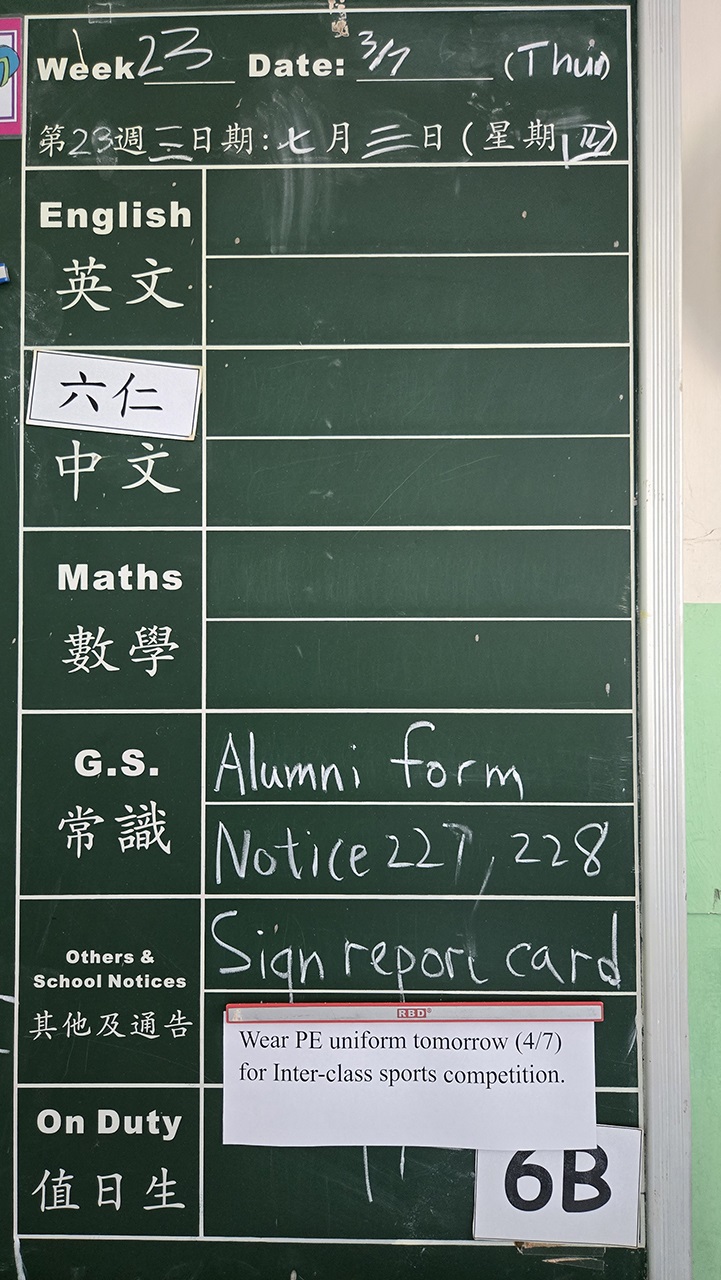 Week 23 Date: 3/7 (Thu)
第23週 三日期:七月三日(星期四)
English
英文
六仁
中文
Maths
數學
G.S.
常識
Alumni form
Notice 227, 228
Others &
School Notices
其他及通告
Sign report card
RBD
Wear PE uniform tomorrow (4/7)
for Inter-class sports competition.
On Duty
值日生
6B